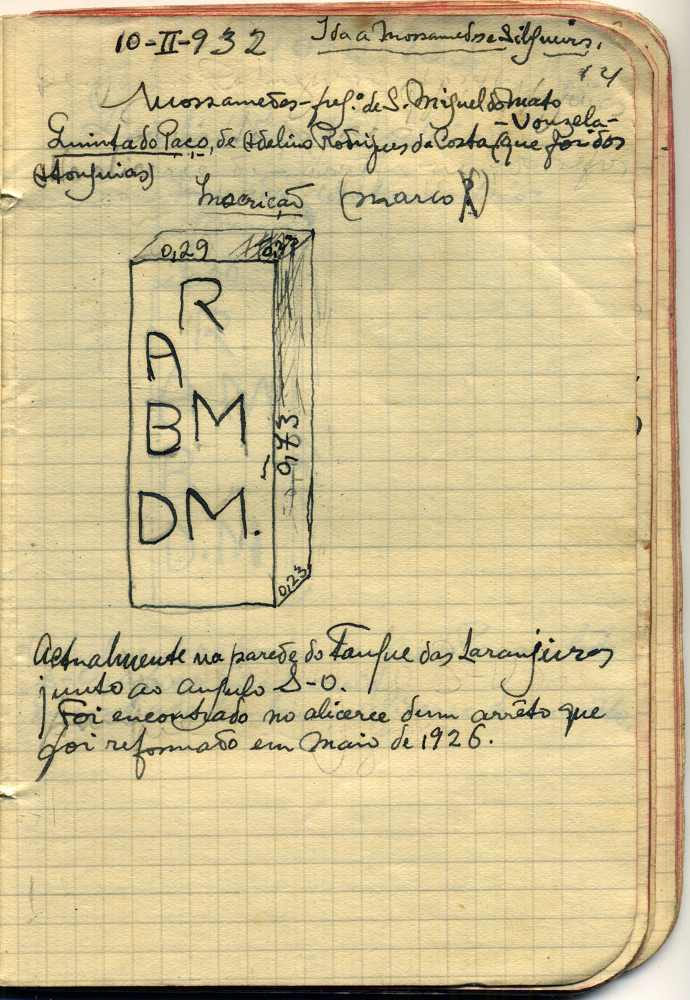 10-II-932 Ida a Mossamedes e Silgueiros.
14
Mossamedes - freg.ª de S. Miguel do Mato
- Vouzela -
Quinta do Paço, de Adelino Rodrigues da Costa (que foi dos
Inscrição (marco)
0,29
R
A
B M
DM.
0,73
0,23
Actualmente na parede do Tanque das Laranjeiras
junto ao angulo S-O.
Foi encontrado no alicerce dum arrêto que
foi reformado em Maio de 1926.